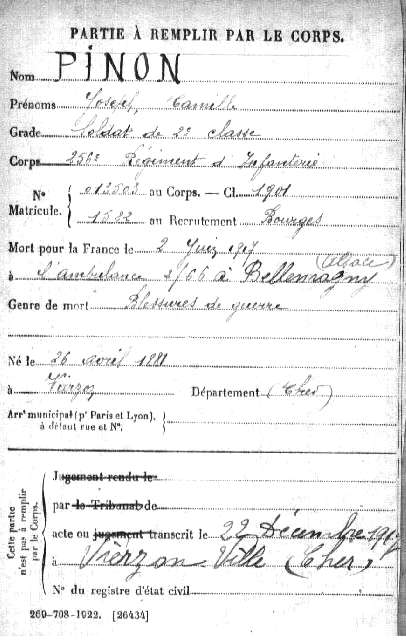 PARTIE À REMPLIR PAR LE CORPS.
Nom PINON
Prénoms Joseph, Camille
Grade Soldat de 2e classe
Corps 256e Régiment d'Infanterie
N° Matricule. { 012503 au Corps. — Cl. 1901
1582 au Recrutement Bourges
Mort pour la France le 2 Juin 1917
à l'ambulance 2/66 à Bellemagny (Alsace)
Genre de mort Blessures de guerre
Né le 26 avril 1881
à Vierzon Département (Cher)
Arrt municipal (pr Paris et Lyon), à défaut rue et N°. {
Cette partie n'est pas à remplir par le Corps.
Jugement rendu le
par le Tribunal de
acte ou jugement transcrit le 22 Décembre 1917
à Vierzon Ville (Cher)
N° du registre d'état civil
269-708-1922. [26434]